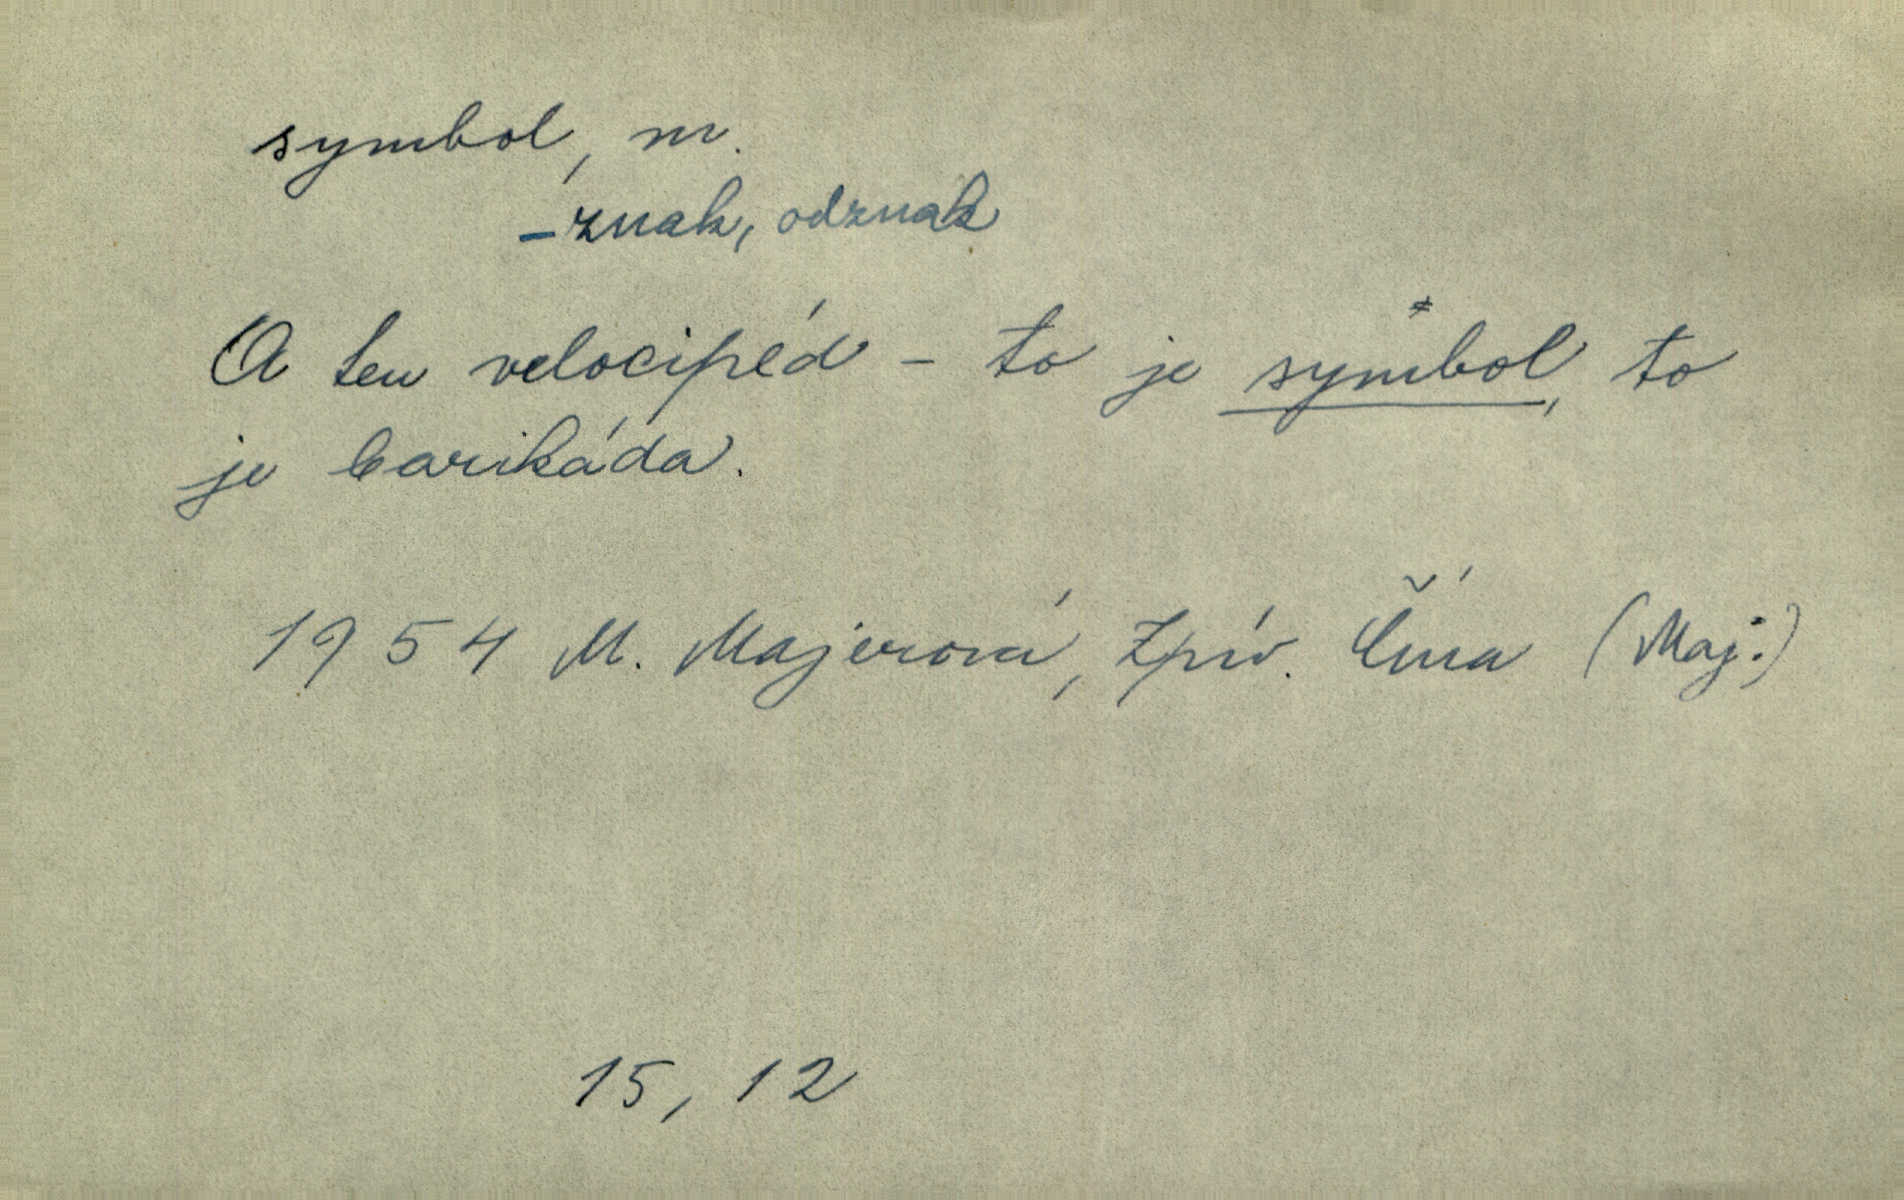 symbol, m.
– znak, odznak
A ten velocipéd – to je symbol, to
je barikáda.
1954 M. Majerová, Zpív. Čína (Maj.)
15, 12